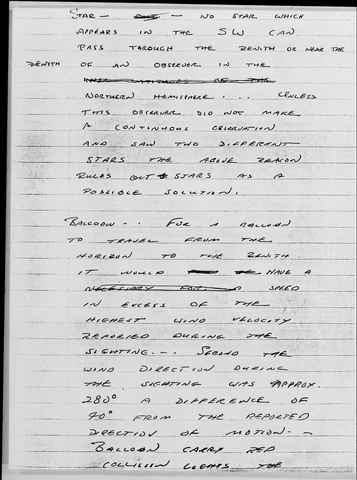 STAR — — NO STAR WHICH
APPEARS IN THE SW CAN
PASS THROUGH THE ZENITH OR NEAR THE
ZENITH OF AN OBSERVER IN THE
NORTHERN HEMISPHERE ... UNLESS
THIS OBSERVER DID NOT MAKE
A CONTINUOUS OBSERVATION
AND SAW TWO DIFFERENT
STARS THE ABOVE REASON
RULES OUT STARS AS A
POSSIBLE SOLUTION.
BALLOON -- FOR A BALLOON
TO TRAVEL FROM THE
HORIZON TO THE ZENITH
IT WOULD HAVE A
NECESSARY FOR A SPEED
IN EXCESS OF THE
HIGHEST WIND VELOCITY
REPORTED DURING THE
SIGHTING -.- SECOND THE
WIND DIRECTION DURING
THE SIGHTING WAS APPROX.
280° A DIFFERENCE OF
70° FROM THE REPORTED
DIRECTION OF MOTION --
BALLOON CARRY RED
COLLISION LIGHTS THE